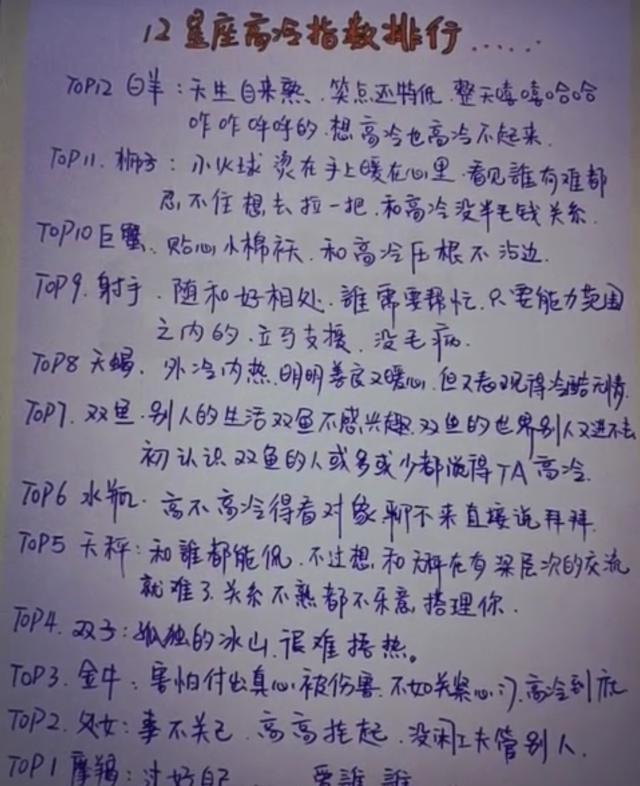 12星座高冷指数排行......
TOP12 白羊：天生自来熟.笑点还特低.整天嘻嘻哈哈
咋咋呼呼的.想高冷也高冷不起来.
TOP11.狮子：小火球 烫在手上暖在心里.看见誰有难都
忍不住想去拉一把.和高冷没半毛钱关系.
TOP10巨蟹、贴心小棉袄、和高冷压根不沾边.
TOP9.射手.随和好相处.誰需要帮忙.只要能力范围
之内的.立马支援、没毛病.
TOP8天蝎.外冷内热.明明善良又暖心.但又表现得冷酷无情.
TOP7.双鱼.别人的生活双鱼不感兴趣.双鱼的世界别人又进不去
初认识双鱼的人或多或少都觉得TA高冷.
TOP6 水瓶.高不高冷得看对象聊不来直接说拜拜.
TOP5 天秤：和誰都能侃.不过想和天秤在有深层次的交流
就难了.关系不熟都不乐意搭理你.
TOP4.双子：孤独的冰山.很难捂热。
TOP3.金牛：害怕付出真心被伤害.不如关紧心门.高冷到底
TOP2.处女：事不关己.高高挂起.没闲工夫管别人.
TOP1摩羯：过好自己 爱誰誰